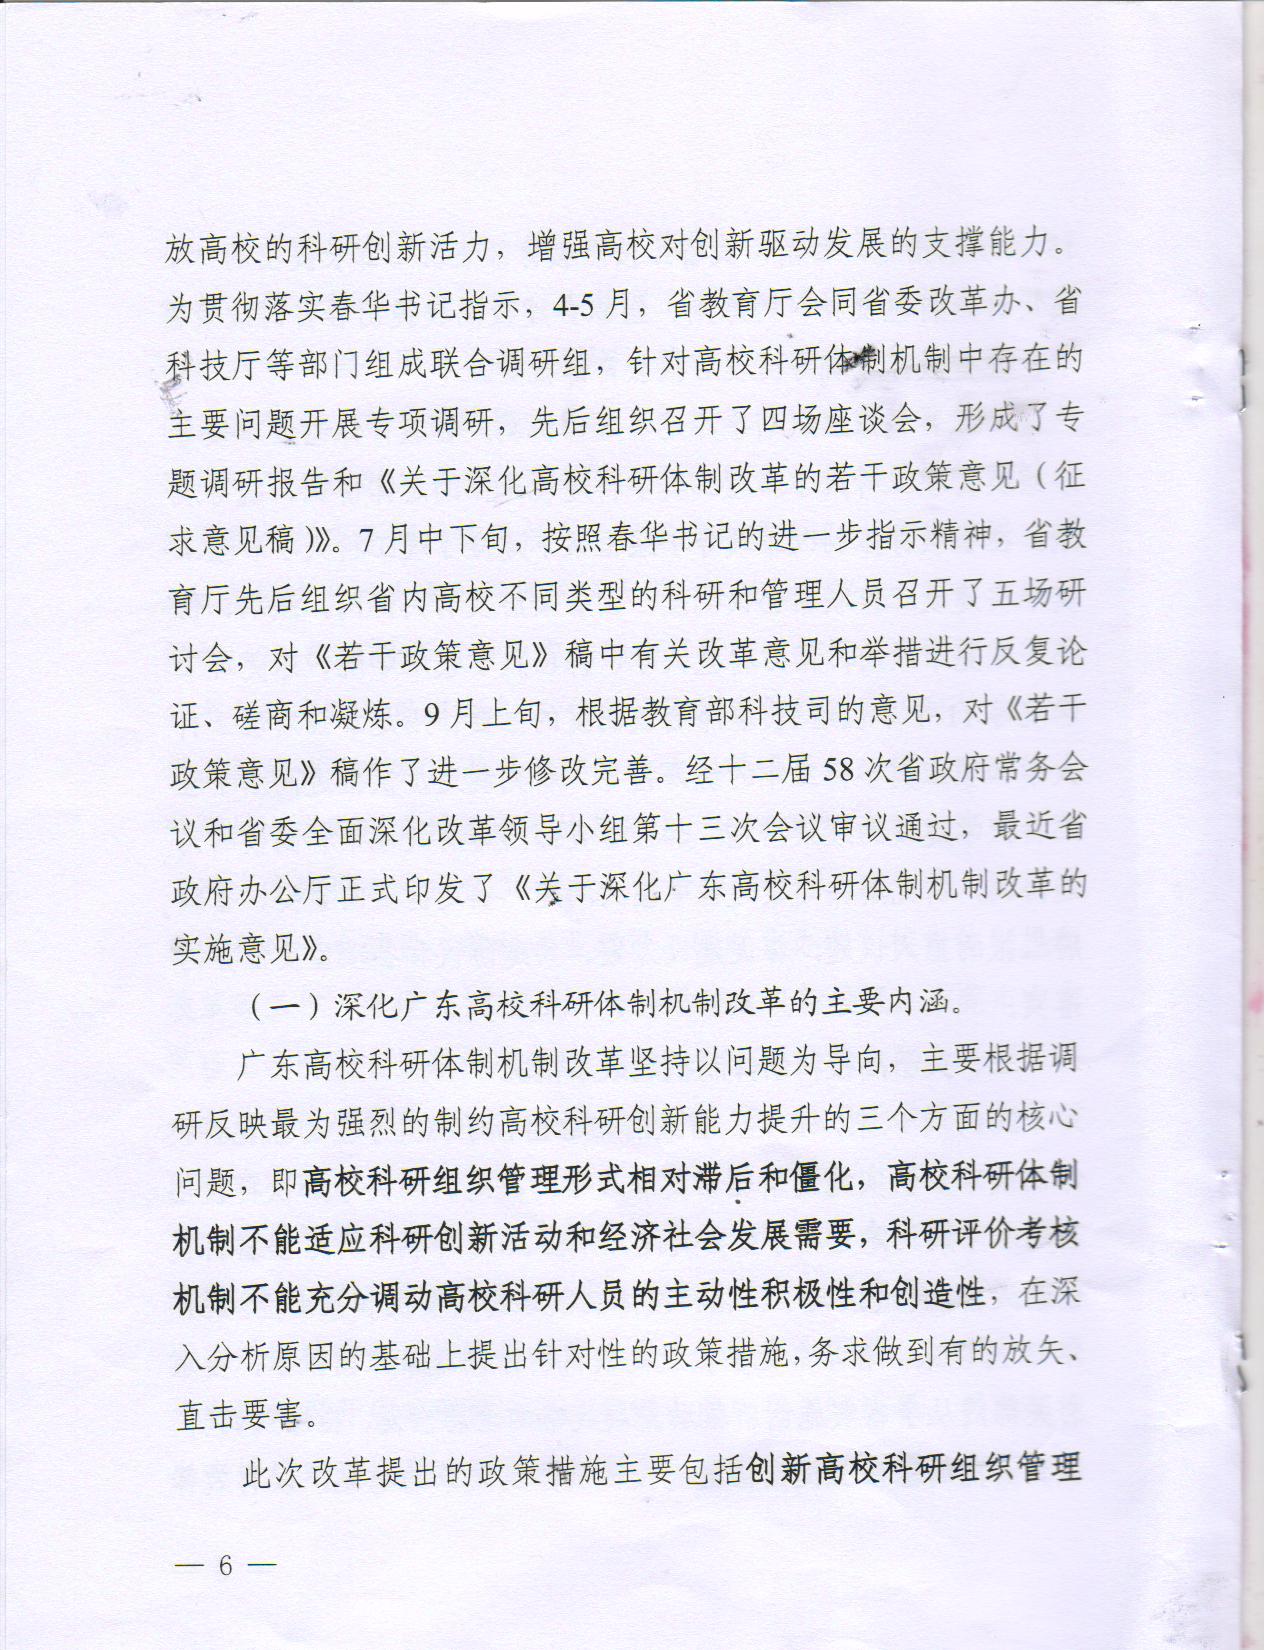 放高校的科研创新活力，增强高校对创新驱动发展的支撑能力。
为贯彻落实春华书记指示，4-5 月，省教育厅会同省委改革办、省
科技厅等部门组成联合调研组，针对高校科研体制机制中存在的
主要问题开展专项调研，先后组织召开了四场座谈会，形成了专
题调研报告和《关于深化高校科研体制改革的若干政策意见（征
求意见稿）》。7 月中下旬，按照春华书记的进一步指示精神，省教
育厅先后组织省内高校不同类型的科研和管理人员召开了五场研
讨会，对《若干政策意见》稿中有关改革意见和举措进行反复论
证、磋商和凝炼。9 月上旬，根据教育部科技司的意见，对《若干
政策意见》稿作了进一步修改完善。经十二届 58 次省政府常务会
议和省委全面深化改革领导小组第十三次会议审议通过，最近省
政府办公厅正式印发了《关于深化广东高校科研体制机制改革的
实施意见》。
（一）深化广东高校科研体制机制改革的主要内涵。
广东高校科研体制机制改革坚持以问题为导向，主要根据调
研反映最为强烈的制约高校科研创新能力提升的三个方面的核心
问题，即高校科研组织管理形式相对滞后和僵化，高校科研体制
机制不能适应科研创新活动和经济社会发展需要，科研评价考核
机制不能充分调动高校科研人员的主动性积极性和创造性，在深
入分析原因的基础上提出针对性的政策措施，务求做到有的放矢、
直击要害。
此次改革提出的政策措施主要包括创新高校科研组织管理
— 6 —